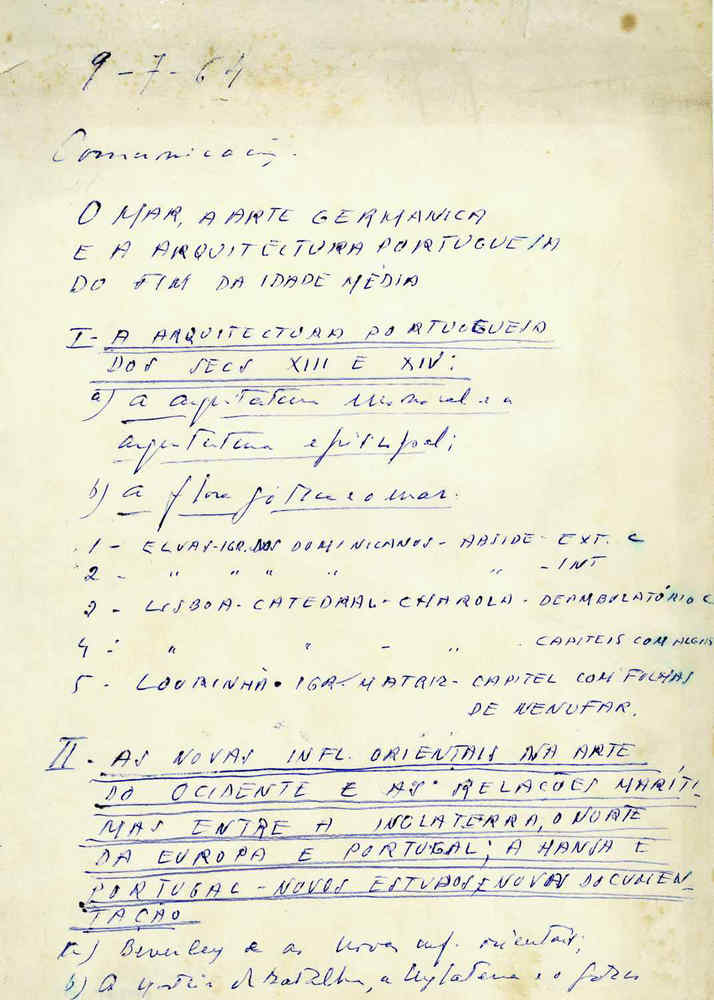 9-7-64
Comunicação.
O MAR, A ARTE GERMANICA
E A ARQUITECTURA PORTUGUESA
DO FIM DA IDADE MÉDIA
I - A ARQUITECTURA PORTUGUESA
DOS SECS XIII E XIV:
a) a arquitectura e a
arquitectura episcopal;
b) a flora gótica e o mar.
1 - ELVAS-IGR. DOS DOMINICANOS - ABSIDE - EXT. C
2 - " " " " " - INT
3 - LISBOA - CATEDRAL - CHAROLA - DEAMBULATÓRIO C
4 - " " - " - CAPITEIS COM ALGAS
5 - LOURINHÃ - IGR. MATRIZ - CAPITEL COM FOLHAS
DE NENUFAR.
II - AS NOVAS INFL. ORIENTAIS NA ARTE
DO OCIDENTE E AS RELAÇÕES MARÍTI-
MAS ENTRE A INGLATERRA, O NORTE
DA EUROPA E PORTUGAL; A HANSA E
PORTUGAL - NOVOS ESTUDOS, NOVA DOCUMEN-
TAÇÃO
a) Beverley e as novas inf. orientais;
b) A Batalha, a Inglaterra e o gótico